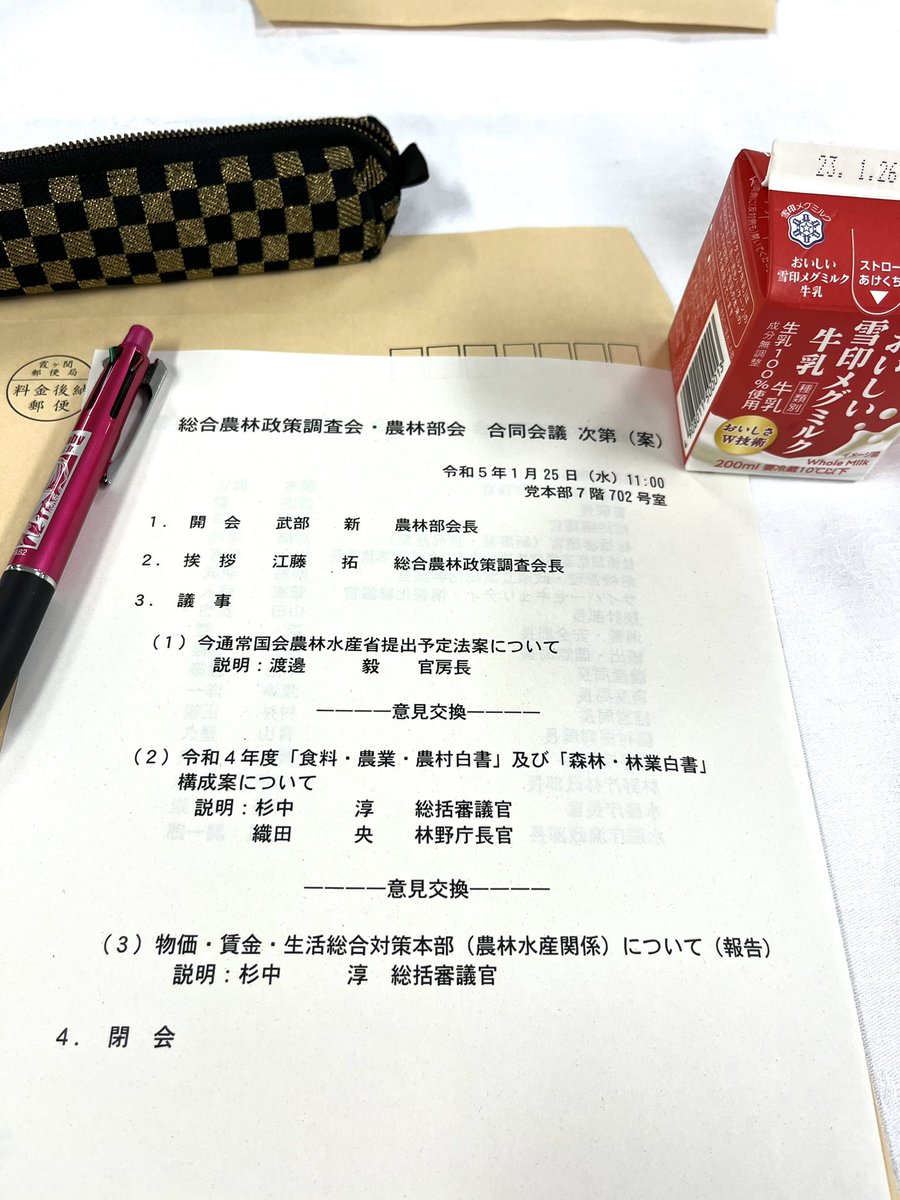 総合農林政策調査会・農林部会　合同会議 次第（案）
令和５年１月 25 日（水）11:00
党本部７階 702 号室
１．　開　会　　武部　　新　　農林部会長
２．　挨　拶　　江藤　　拓　　総合農林政策調査会長
３．　議　事
（１）今通常国会農林水産省提出予定法案について
説明：渡邊　　毅　　官房長
――――意見交換――――
（２）令和４年度「食料・農業・農村白書」及び「森林・林業白書」
構成案について
説明：杉中　　淳　　総括審議官
織田　　央　　林野庁長官
――――意見交換――――
（３）物価・賃金・生活総合対策本部（農林水産関係）について（報告）
説明：杉中　　淳　　総括審議官
４．　閉　会
霞ヶ関
郵便局
料金後納
郵便
23. 1.26
雪印メグミルク
おいしい
雪印メグミルク
牛乳
ストロー
あけくち
おいしい
雪印メグミルク
牛乳
種類別
牛乳
生乳100%使用
成分無調整
おいしさ
W技術
イメージ図
Whole Milk
200ml 要冷蔵10℃以下